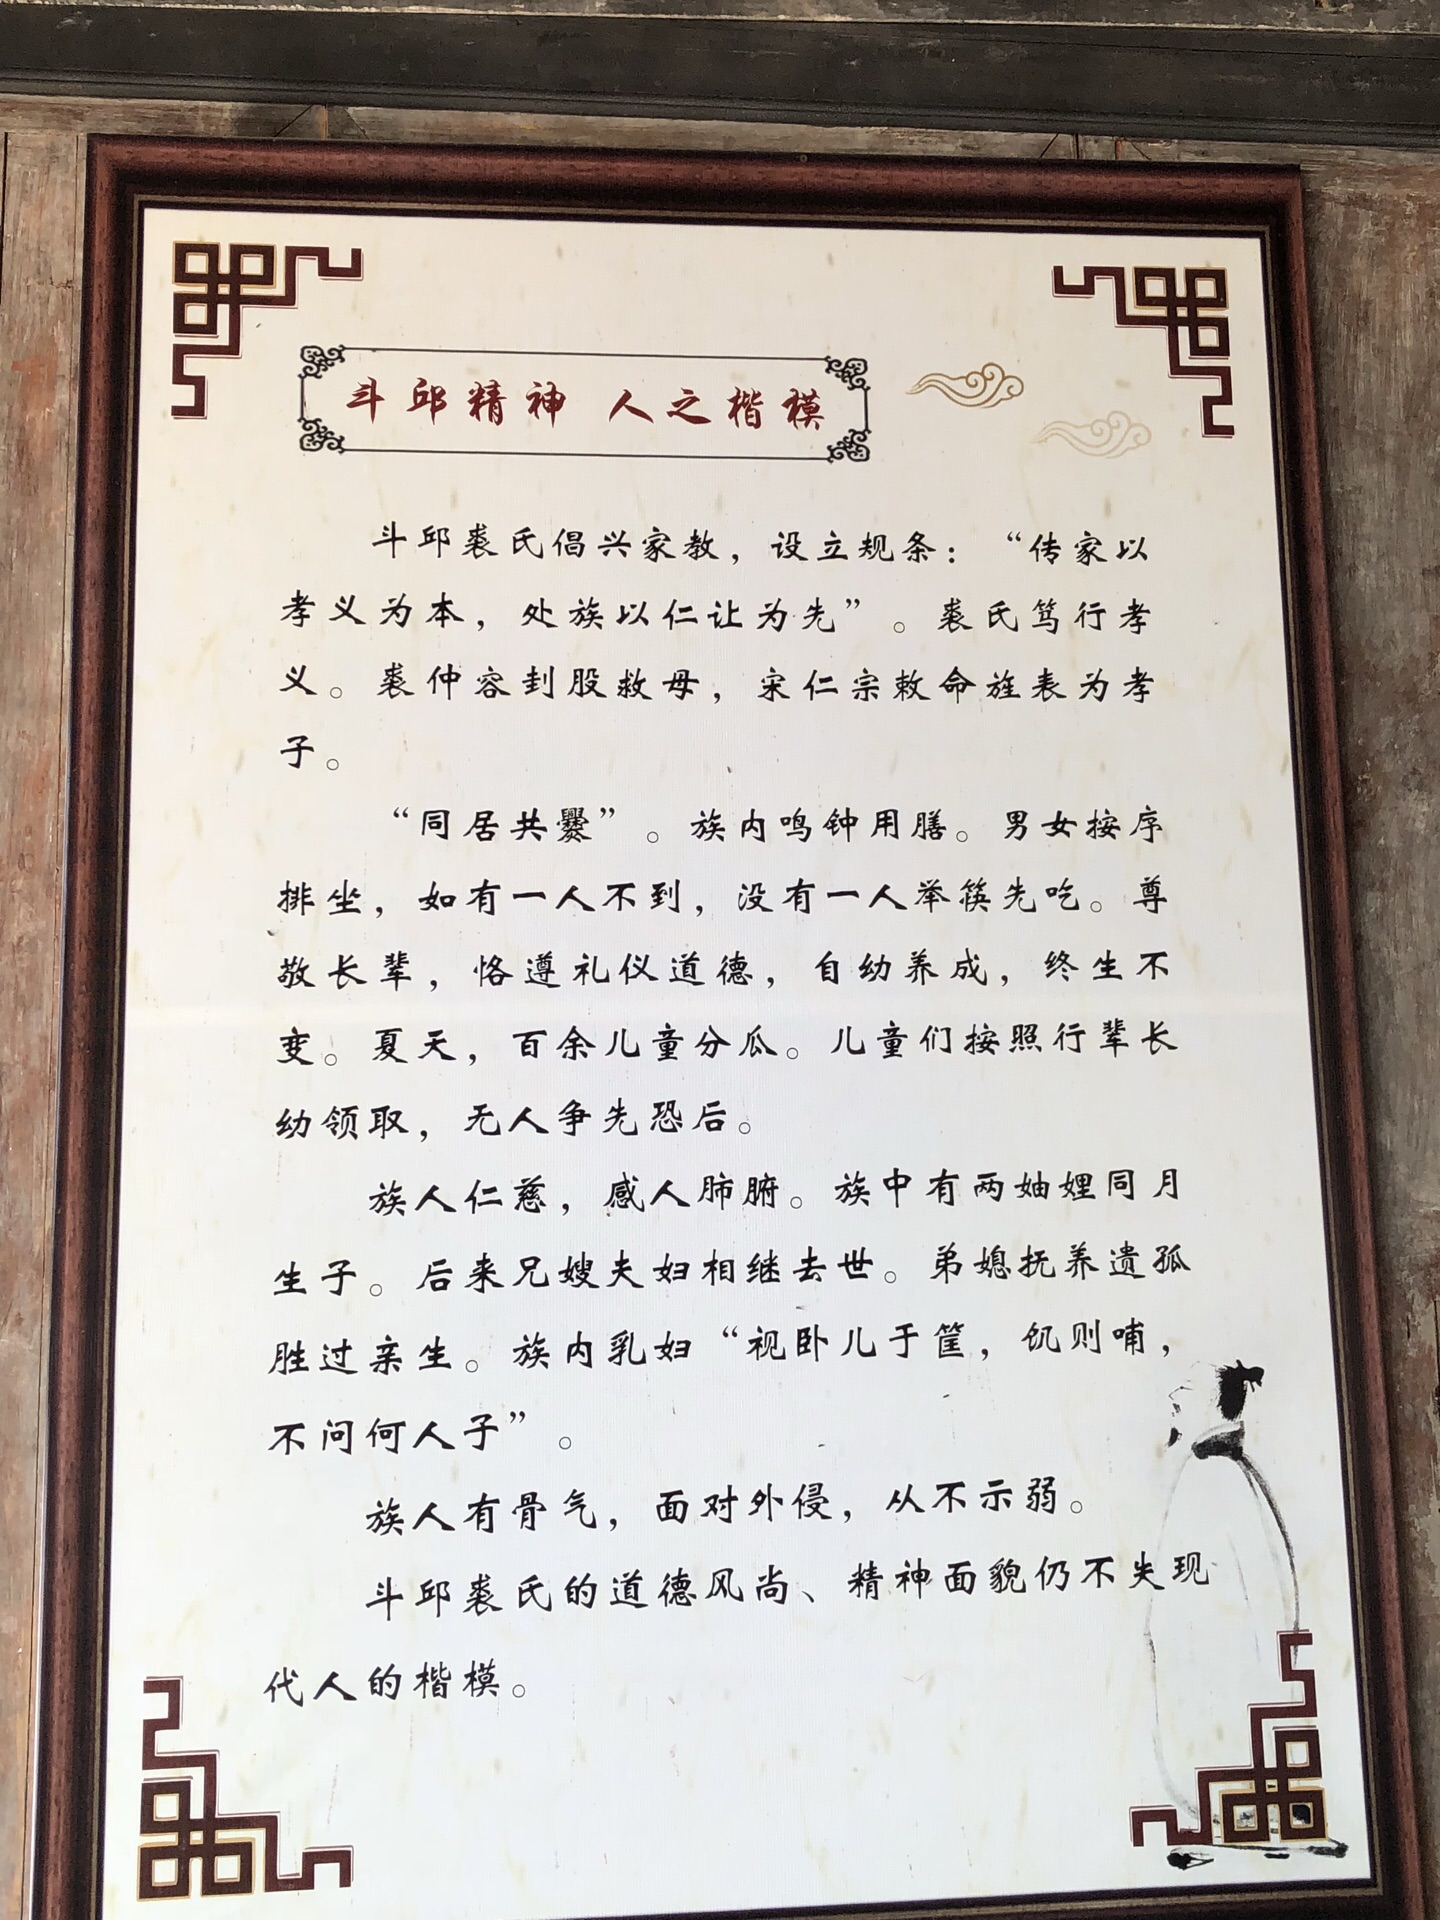 斗邱精神 人之楷模
斗邱裘氏倡兴家教，设立规条：“传家以
孝义为本，处族以仁让为先”。裘氏笃行孝
义。裘仲容刲股救母，宋仁宗敕命旌表为孝
子。
“同居共爨”。族内鸣钟用膳。男女按序
排坐，如有一人不到，没有一人举筷先吃。尊
敬长辈，恪遵礼仪道德，自幼养成，终生不
变。夏天，百余儿童分瓜。儿童们按照行辈长
幼领取，无人争先恐后。
族人仁慈，感人肺腑。族中有两妯娌同月
生子。后来兄嫂夫妇相继去世。弟媳抚养遗孤
胜过亲生。族内乳妇“视卧儿于筐，饥则哺，
不问何人子”。
族人有骨气，面对外侵，从不示弱。
斗邱裘氏的道德风尚、精神面貌仍不失现
代人的楷模。